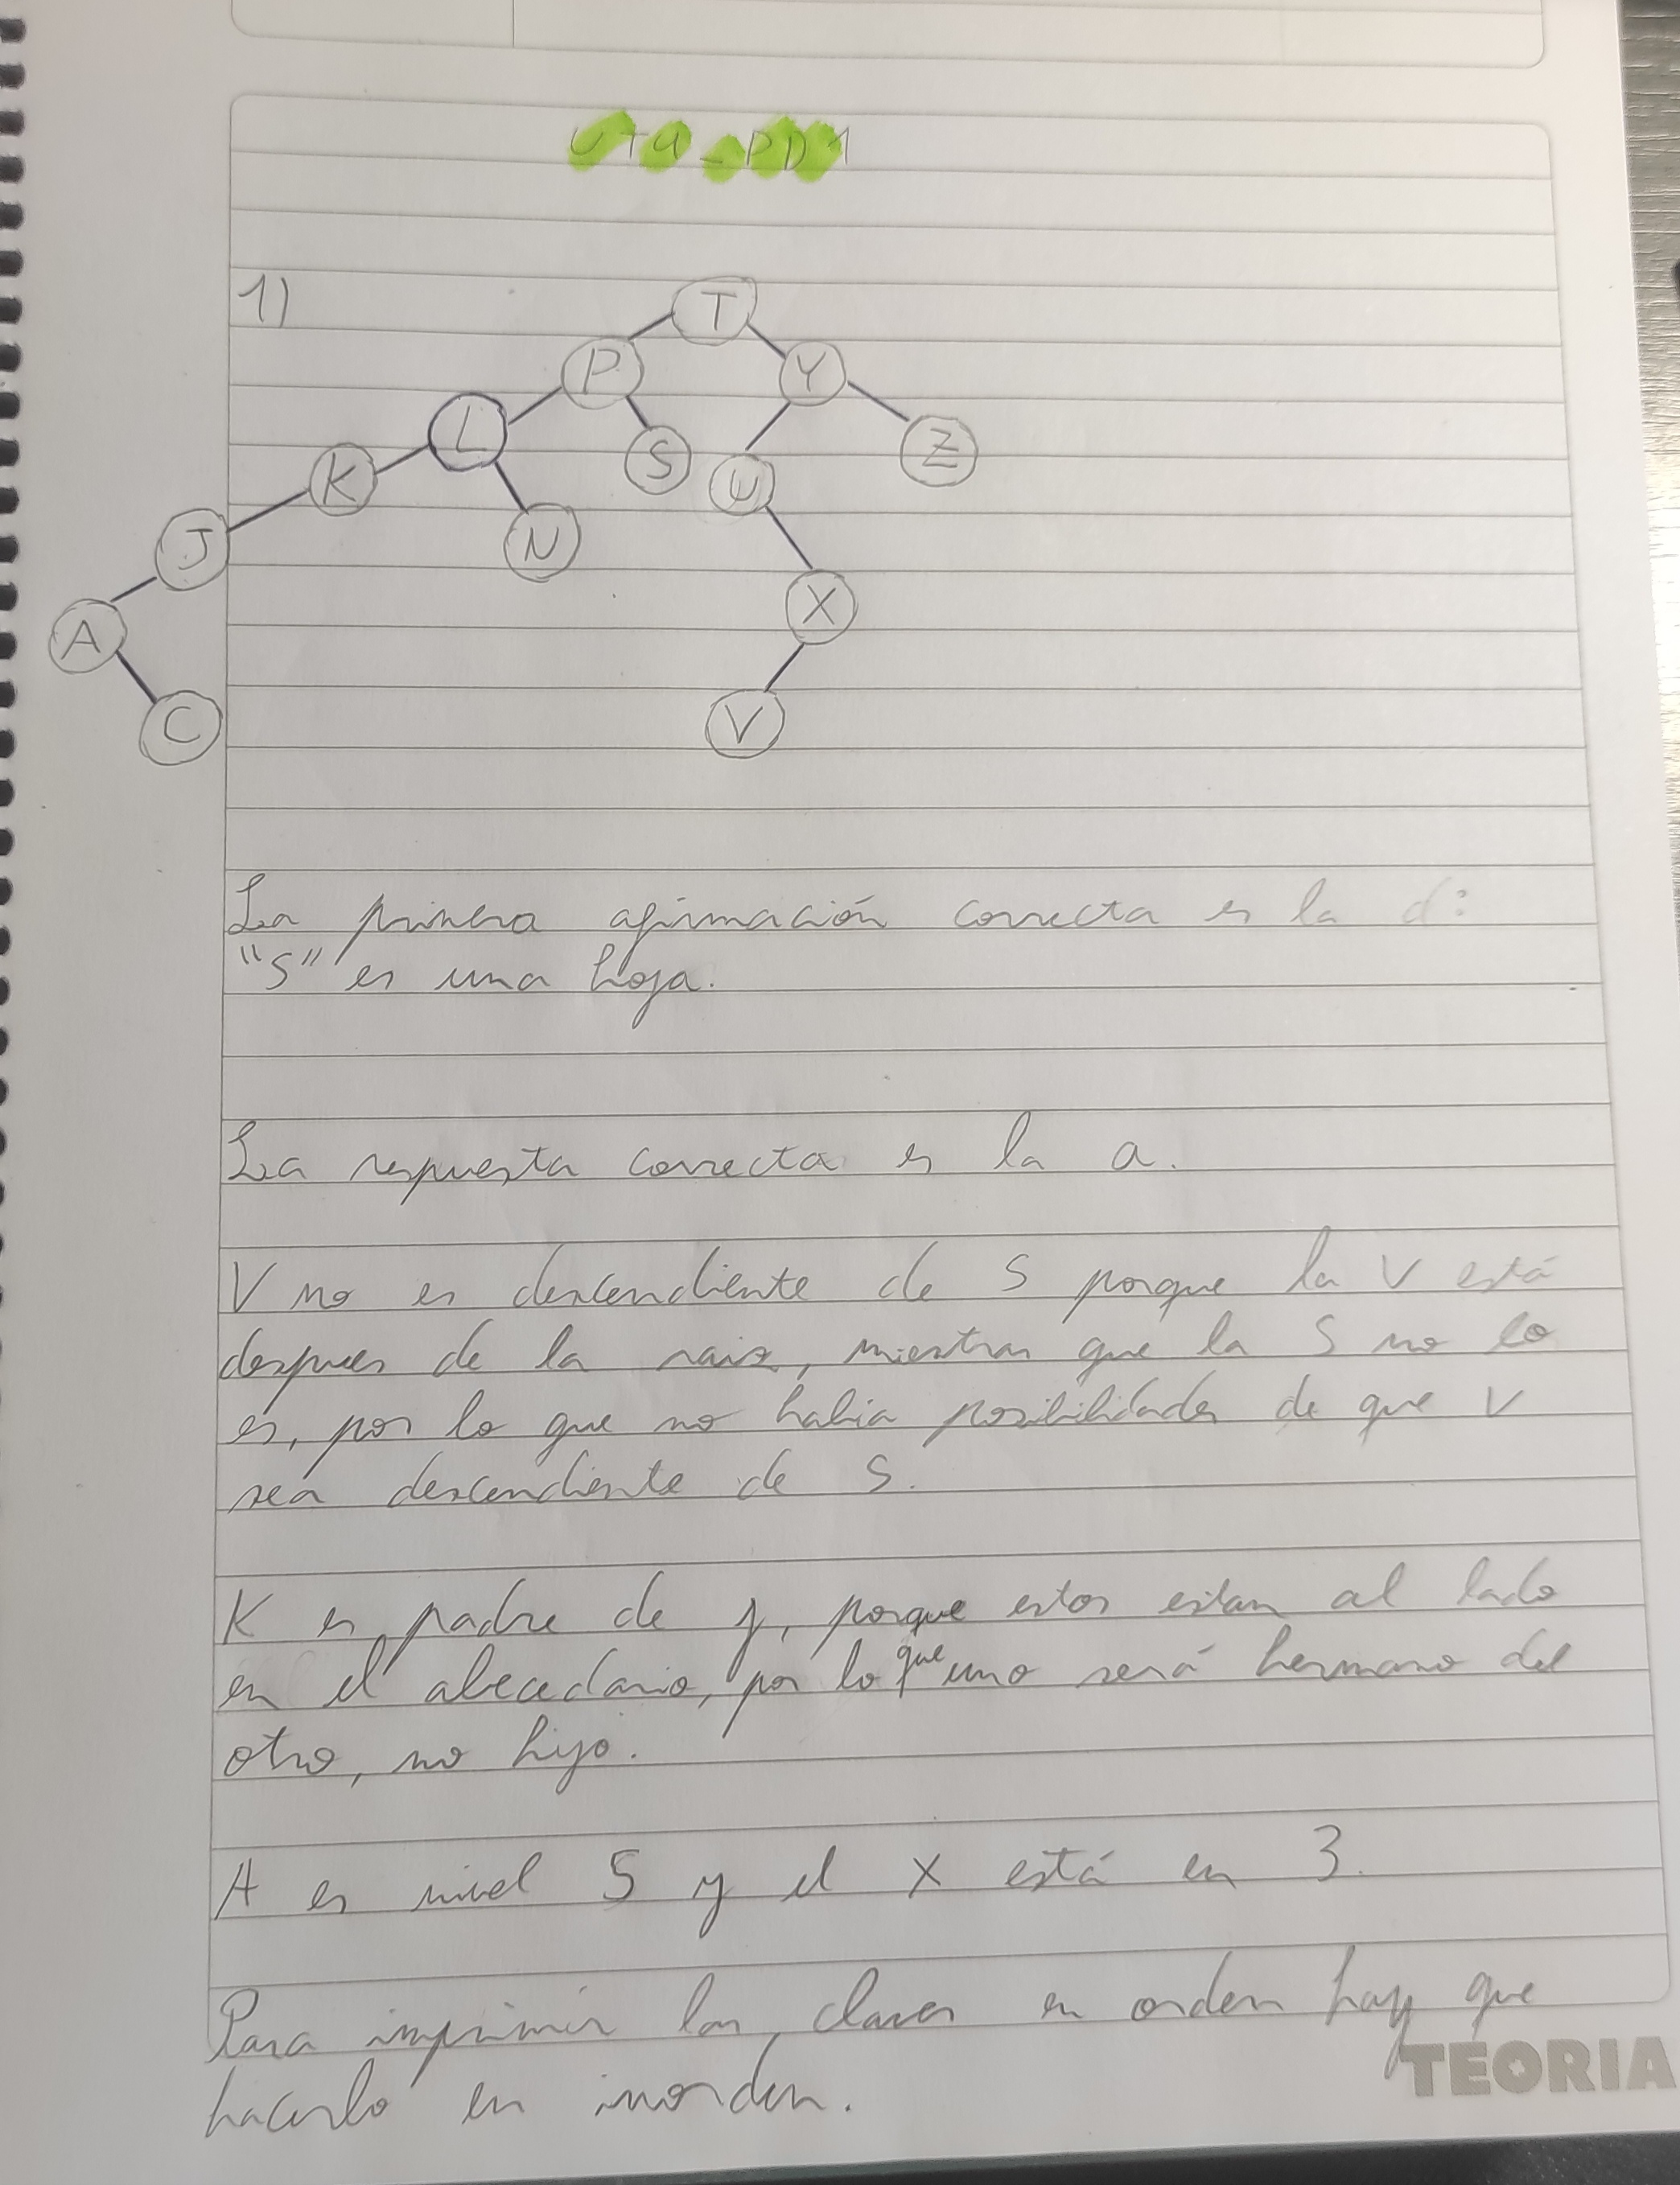 UT4_PD1
1)
T
P
Y
L
S
Z
K
U
J
N
A
X
C
V
La primera afirmación correcta es la d:
"S" es una hoja.
La respuesta correcta es la a.
V no es descendiente de S porque la V está
despues de la raiz, mientras que la S no lo
es, por lo que no habia posibilidades de que V
sea descendiente de S.
K es padre de J, porque estos estan al lado
en el abecedario, por lo que uno será hermano del
otro, no hijo.
A es nivel 5 y el X está en 3.
Para imprimir las claves en orden hay que
hacerlo en inorden.
TEORIA